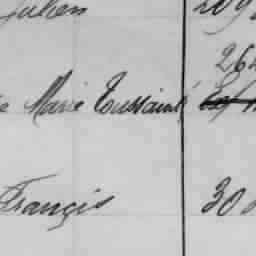 Julien 209
264
Marie Toussaint
François 30